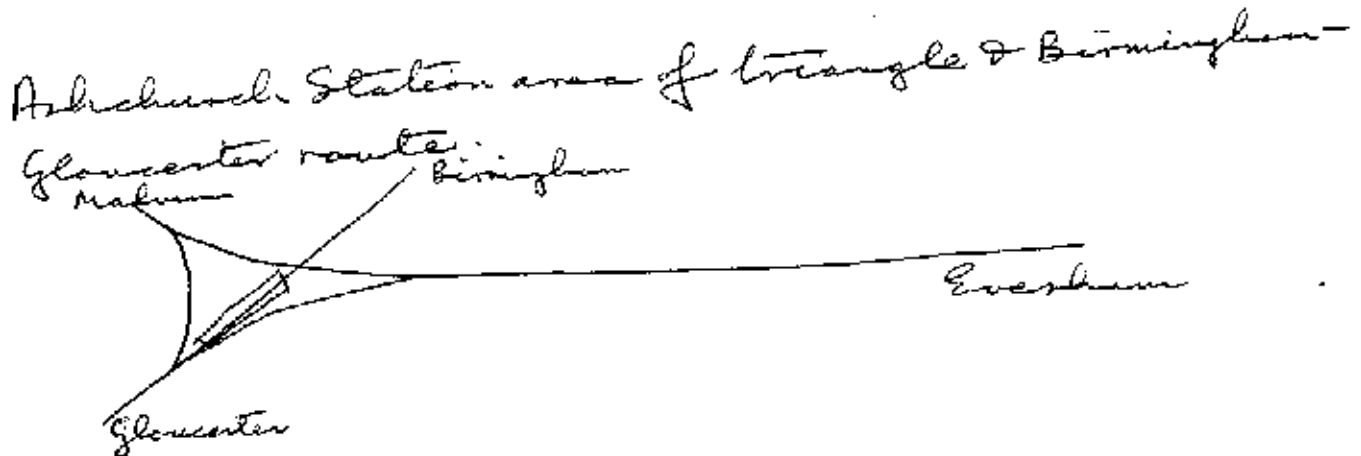 Ashchurch Station area of triangle & Birmingham-
Gloucester route.
Malvern
Birmingham
Evesham
Gloucester